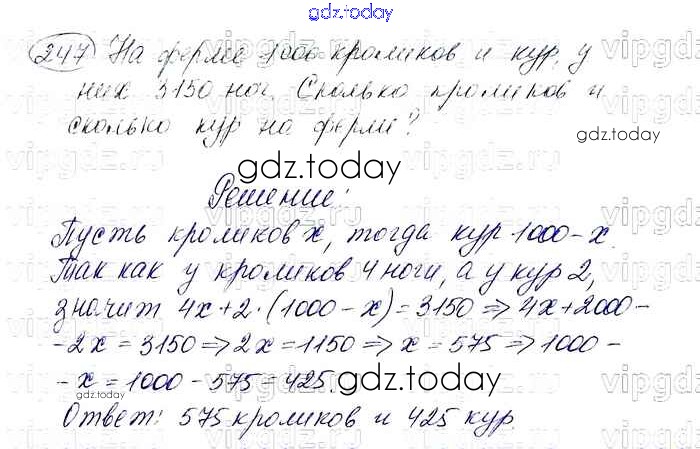 gdz.today
247 На ферме 1000 кроликов и кур, у
них 3150 ног. Сколько кроликов и
сколько кур на ферме?
gdz.today
gdz.today
Решение:
Пусть кроликов x, тогда кур 1000-x.
Так как у кроликов 4 ноги, а у кур 2,
значит 4x+2·(1000-x)=3150⇒4x+2000-
-2x=3150⇒2x=1150⇒x=575⇒1000-
-x=1000-575=425.
gdz.today
Ответ: 575 кроликов и 425 кур